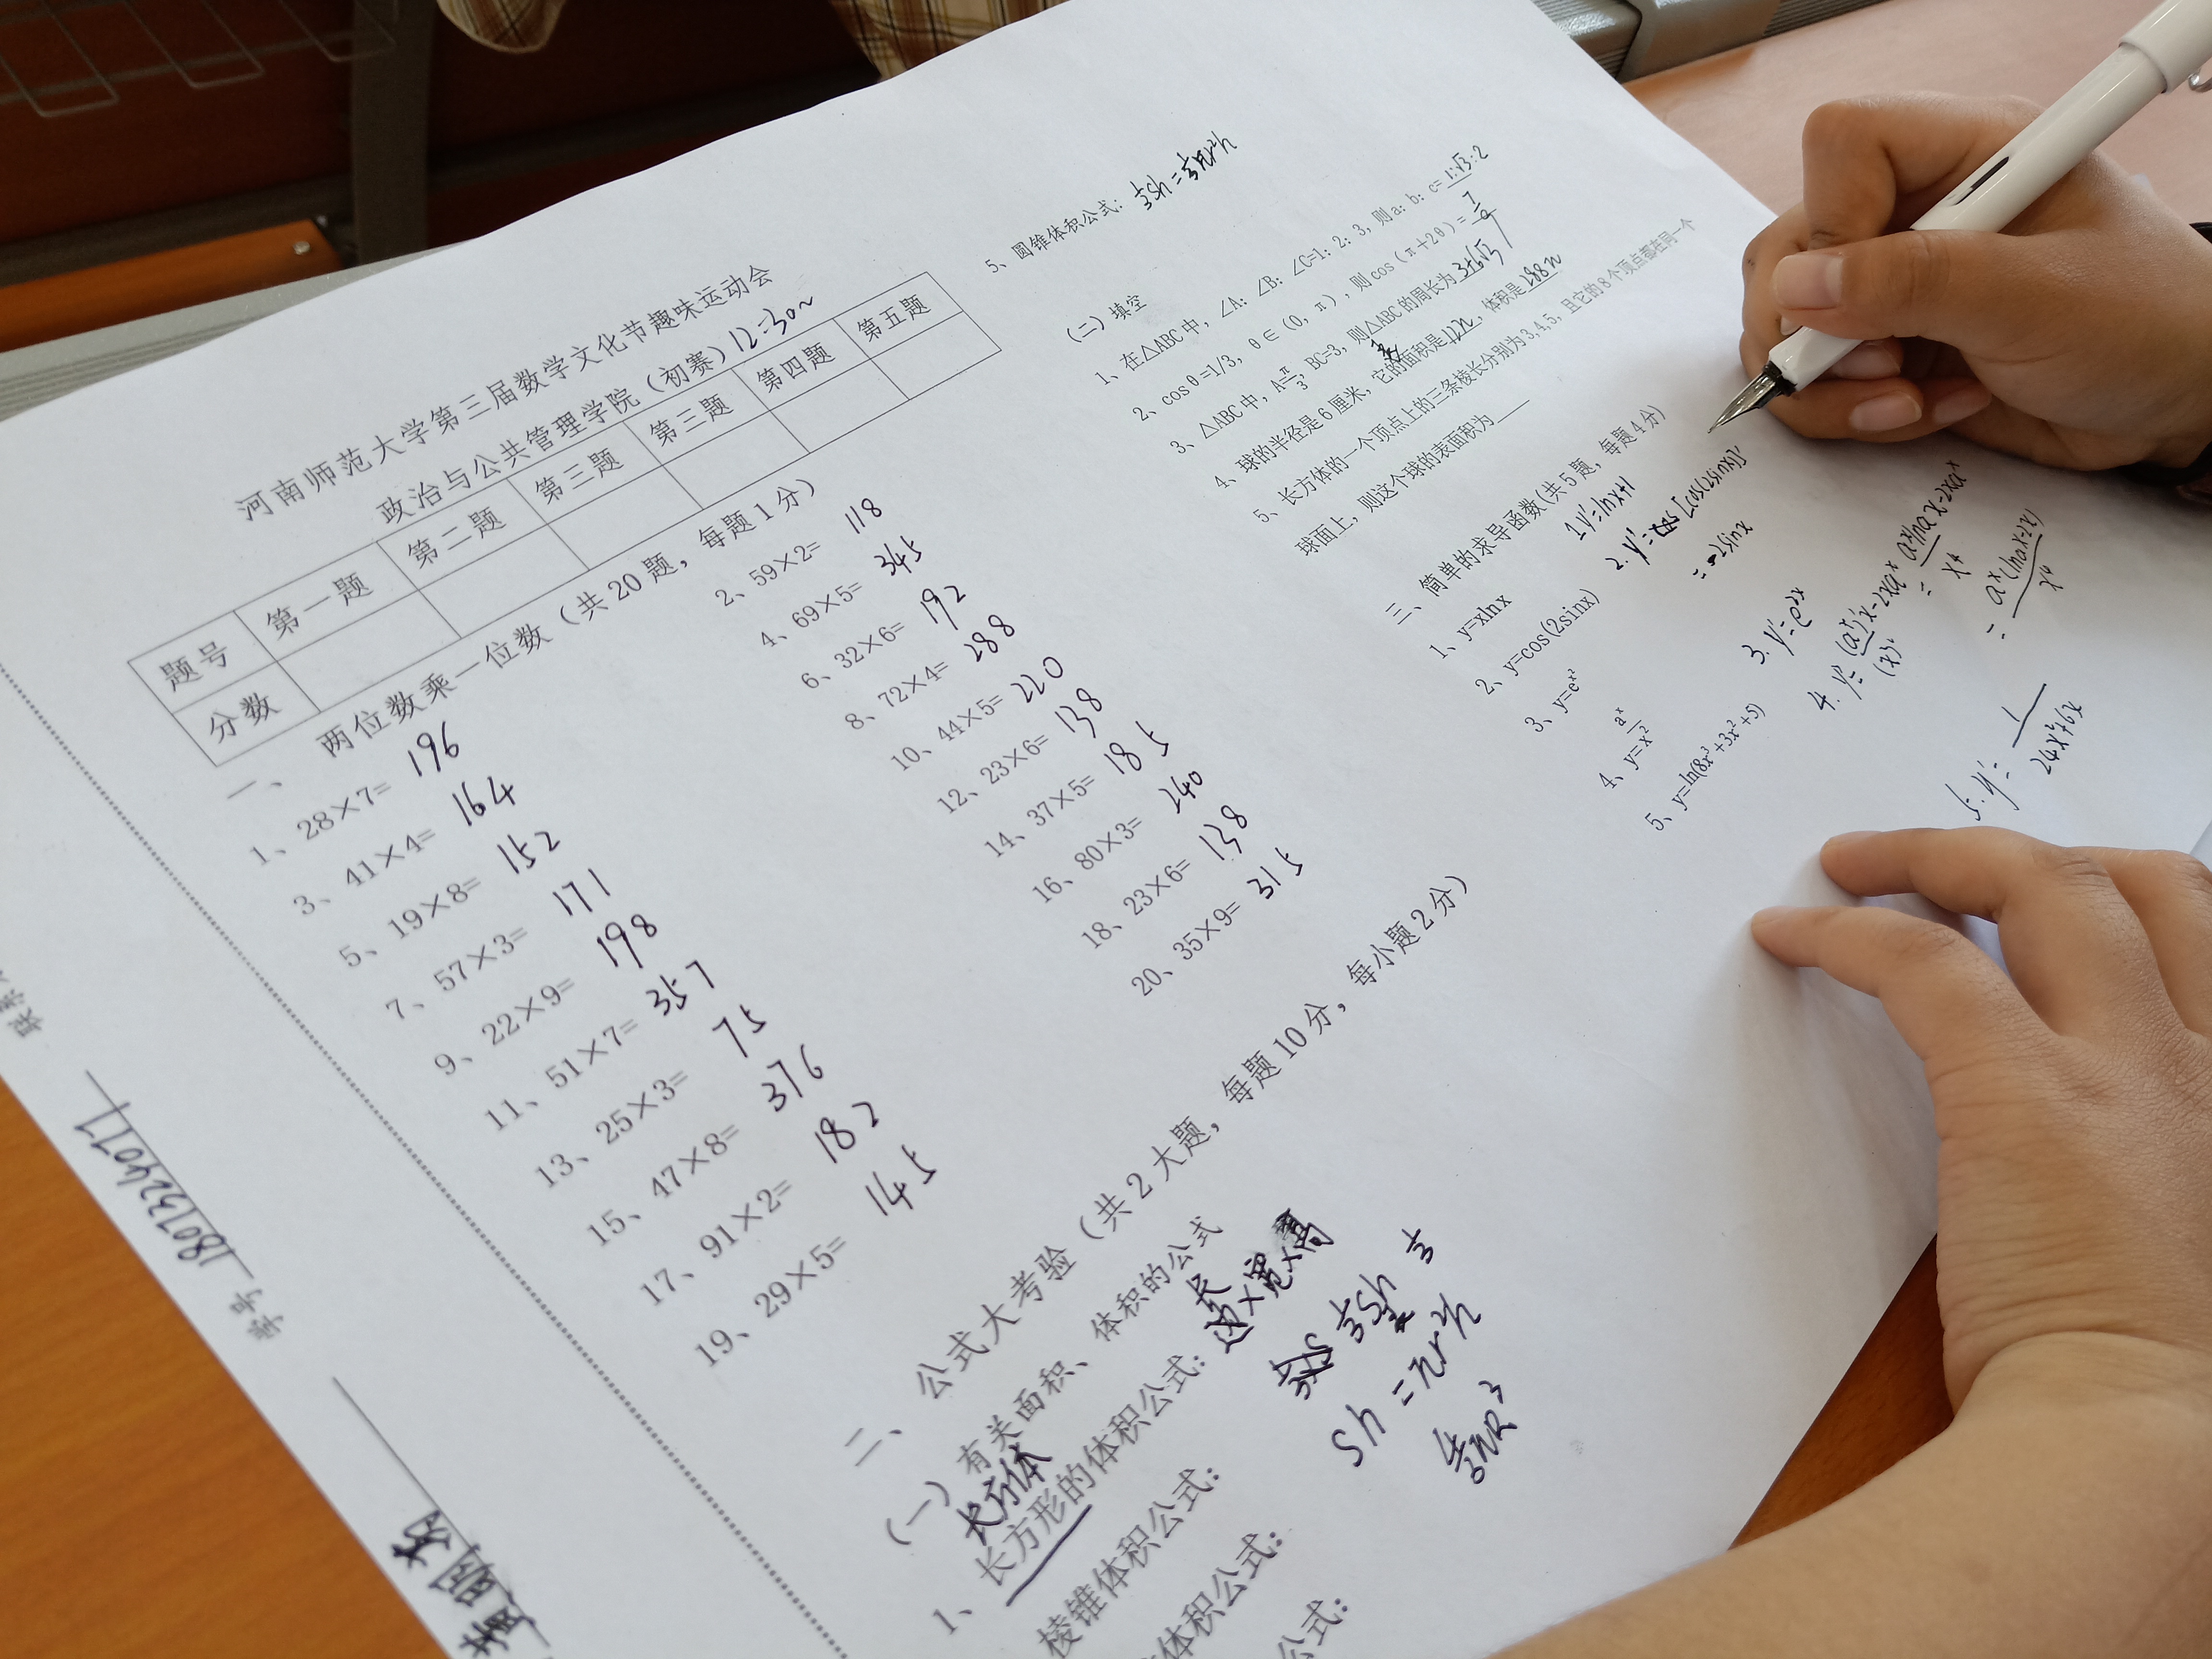 河南师范大学第三届数学文化节趣味运动会
政治与公共管理学院（初赛）12:30~
题号 第一题 第二题 第三题 第三题 第四题 第五题
分数
一、 两位数乘一位数（共20题，每题1分）
1、28×7= 196
2、59×2= 118
3、41×4= 164
4、69×5= 345
5、19×8= 152
6、32×6= 192
7、57×3= 171
8、72×4= 288
9、22×9= 198
10、44×5= 220
11、51×7= 357
12、23×6= 138
13、25×3= 75
14、37×5= 185
15、47×8= 376
16、80×3= 240
17、91×2= 182
18、23×6= 138
19、29×5= 145
20、35×9= 315
二、公式大考验（共2大题，每题10分，每小题2分）
（一）有关面积、体积的公式
长方体
1、长方形的体积公式: 长×宽×高
棱锥体积公式: ⅓Sh
体积公式: Sh =πr²h
公式: 4/3πR³
5、圆锥体积公式: ⅓Sh=⅓πr²h
（二）填空
1、在△ABC中，∠A: ∠B: ∠C=1: 2: 3, 则a: b: c= 1:√3:2
2、cosθ=1/3, θ∈（0, π）, 则cos（π+2θ）= 7/9
3、△ABC中, A=π/3 BC=3, 则△ABC的周长为 3+6√3
4、球的半径是6厘米，它的面积是122π，体积是288π
5、长方体的一个顶点上的三条棱长分别为3,4,5, 且它的8个顶点都在同一个
球面上，则这个球的表面积为
三、简单的求导函数(共5题，每题4分)
1、y=xlnx
1.y'=lnx+1
2、y=cos(2sinx)
2. y'= [cos(2sinx)]'
=-2sinx
3、y=eˣ²
3. y'=e²ˣ
4、y=aˣ/x²
4. y'=(aˣ)'x-2xaˣ/(x²)² = aˣlnax-2xaˣ/x⁴
= aˣ(lnax-2x)/x⁴
5、y=ln(8x³+3x²+5)
5. y'= 1/24x²+6x
学号 1807324077